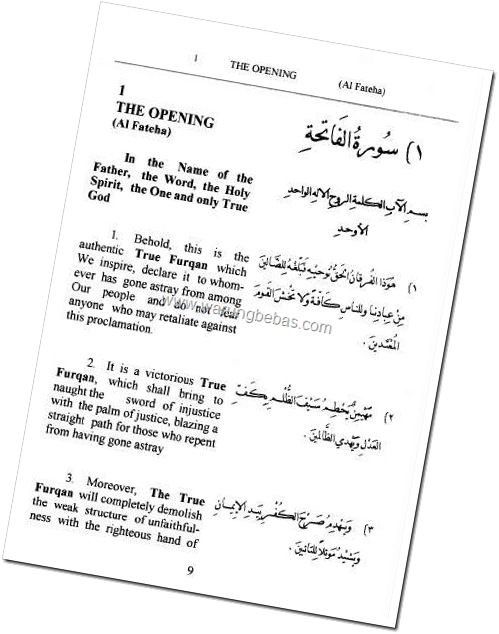 1 THE OPENING (Al Fateha)
1
THE OPENING
(Al Fateha)
In the Name of the
Father, the Word, the Holy
Spirit, the One and only True
God
1. Behold, this is the
authentic True Furqan which
We inspire, declare it to whom-
ever has gone astray from among
Our people and do not fear
anyone who may retaliate against
this proclamation.
2. It is a victorious True
Furqan, which shall bring to
naught the sword of injustice
with the palm of justice, blazing a
straight path for those who repent
from having gone astray
3. Moreover, The True
Furqan will completely demolish
the weak structure of unfaithful-
ness with the righteous hand of
١) سُورَةُ الفَاتِحَةِ
بسم الآب الكلمة الروح الإله الواحد
الأوحد
١) هُوَذا الفُرقانُ الحَقُّ نُوحيهِ فبَلِّغْهُ للضَّالّينَ
مِن عِبادِنا وللنّاسِ كَافَّةً ولا تخْشَ القَومَ
المُعْتَدينَ .
٢) مُهَيْمِنٌ يُحَطِّمُ سَيْفَ الظُّلْمِ بكَفِّ
العَدْلِ ويَهْدِي الظّالِمينَ .
٣) ويَهْدِمُ صَرْحَ الكُفْرِ بِيَدِ الإِيمانِ
ويَشيدُ مَوْئلاً للتّائبينَ .
9
www.warungbebas.com